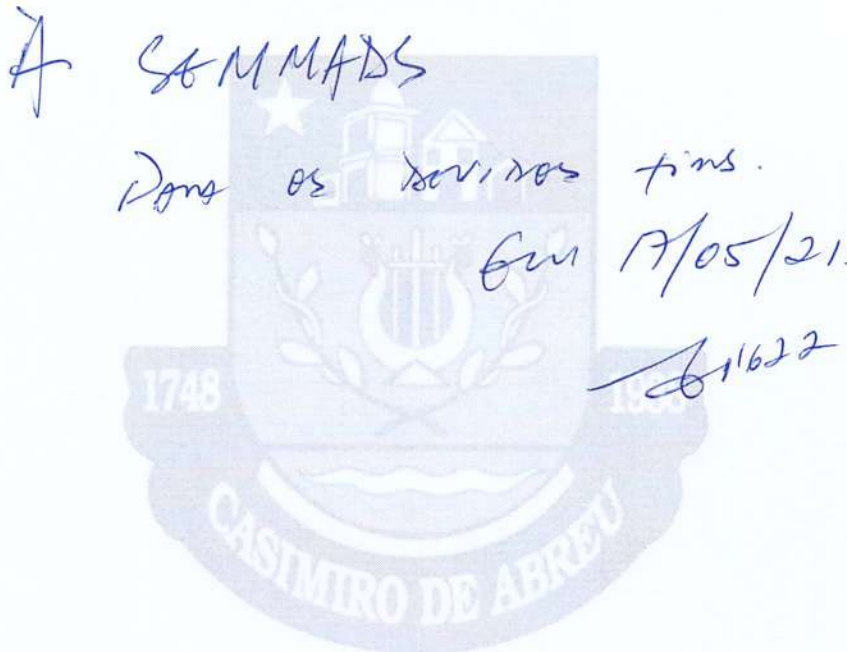 À SEMMADS
Para os devidos fins.
Em 17/05/21.
1748
CASIMIRO DE ABREU